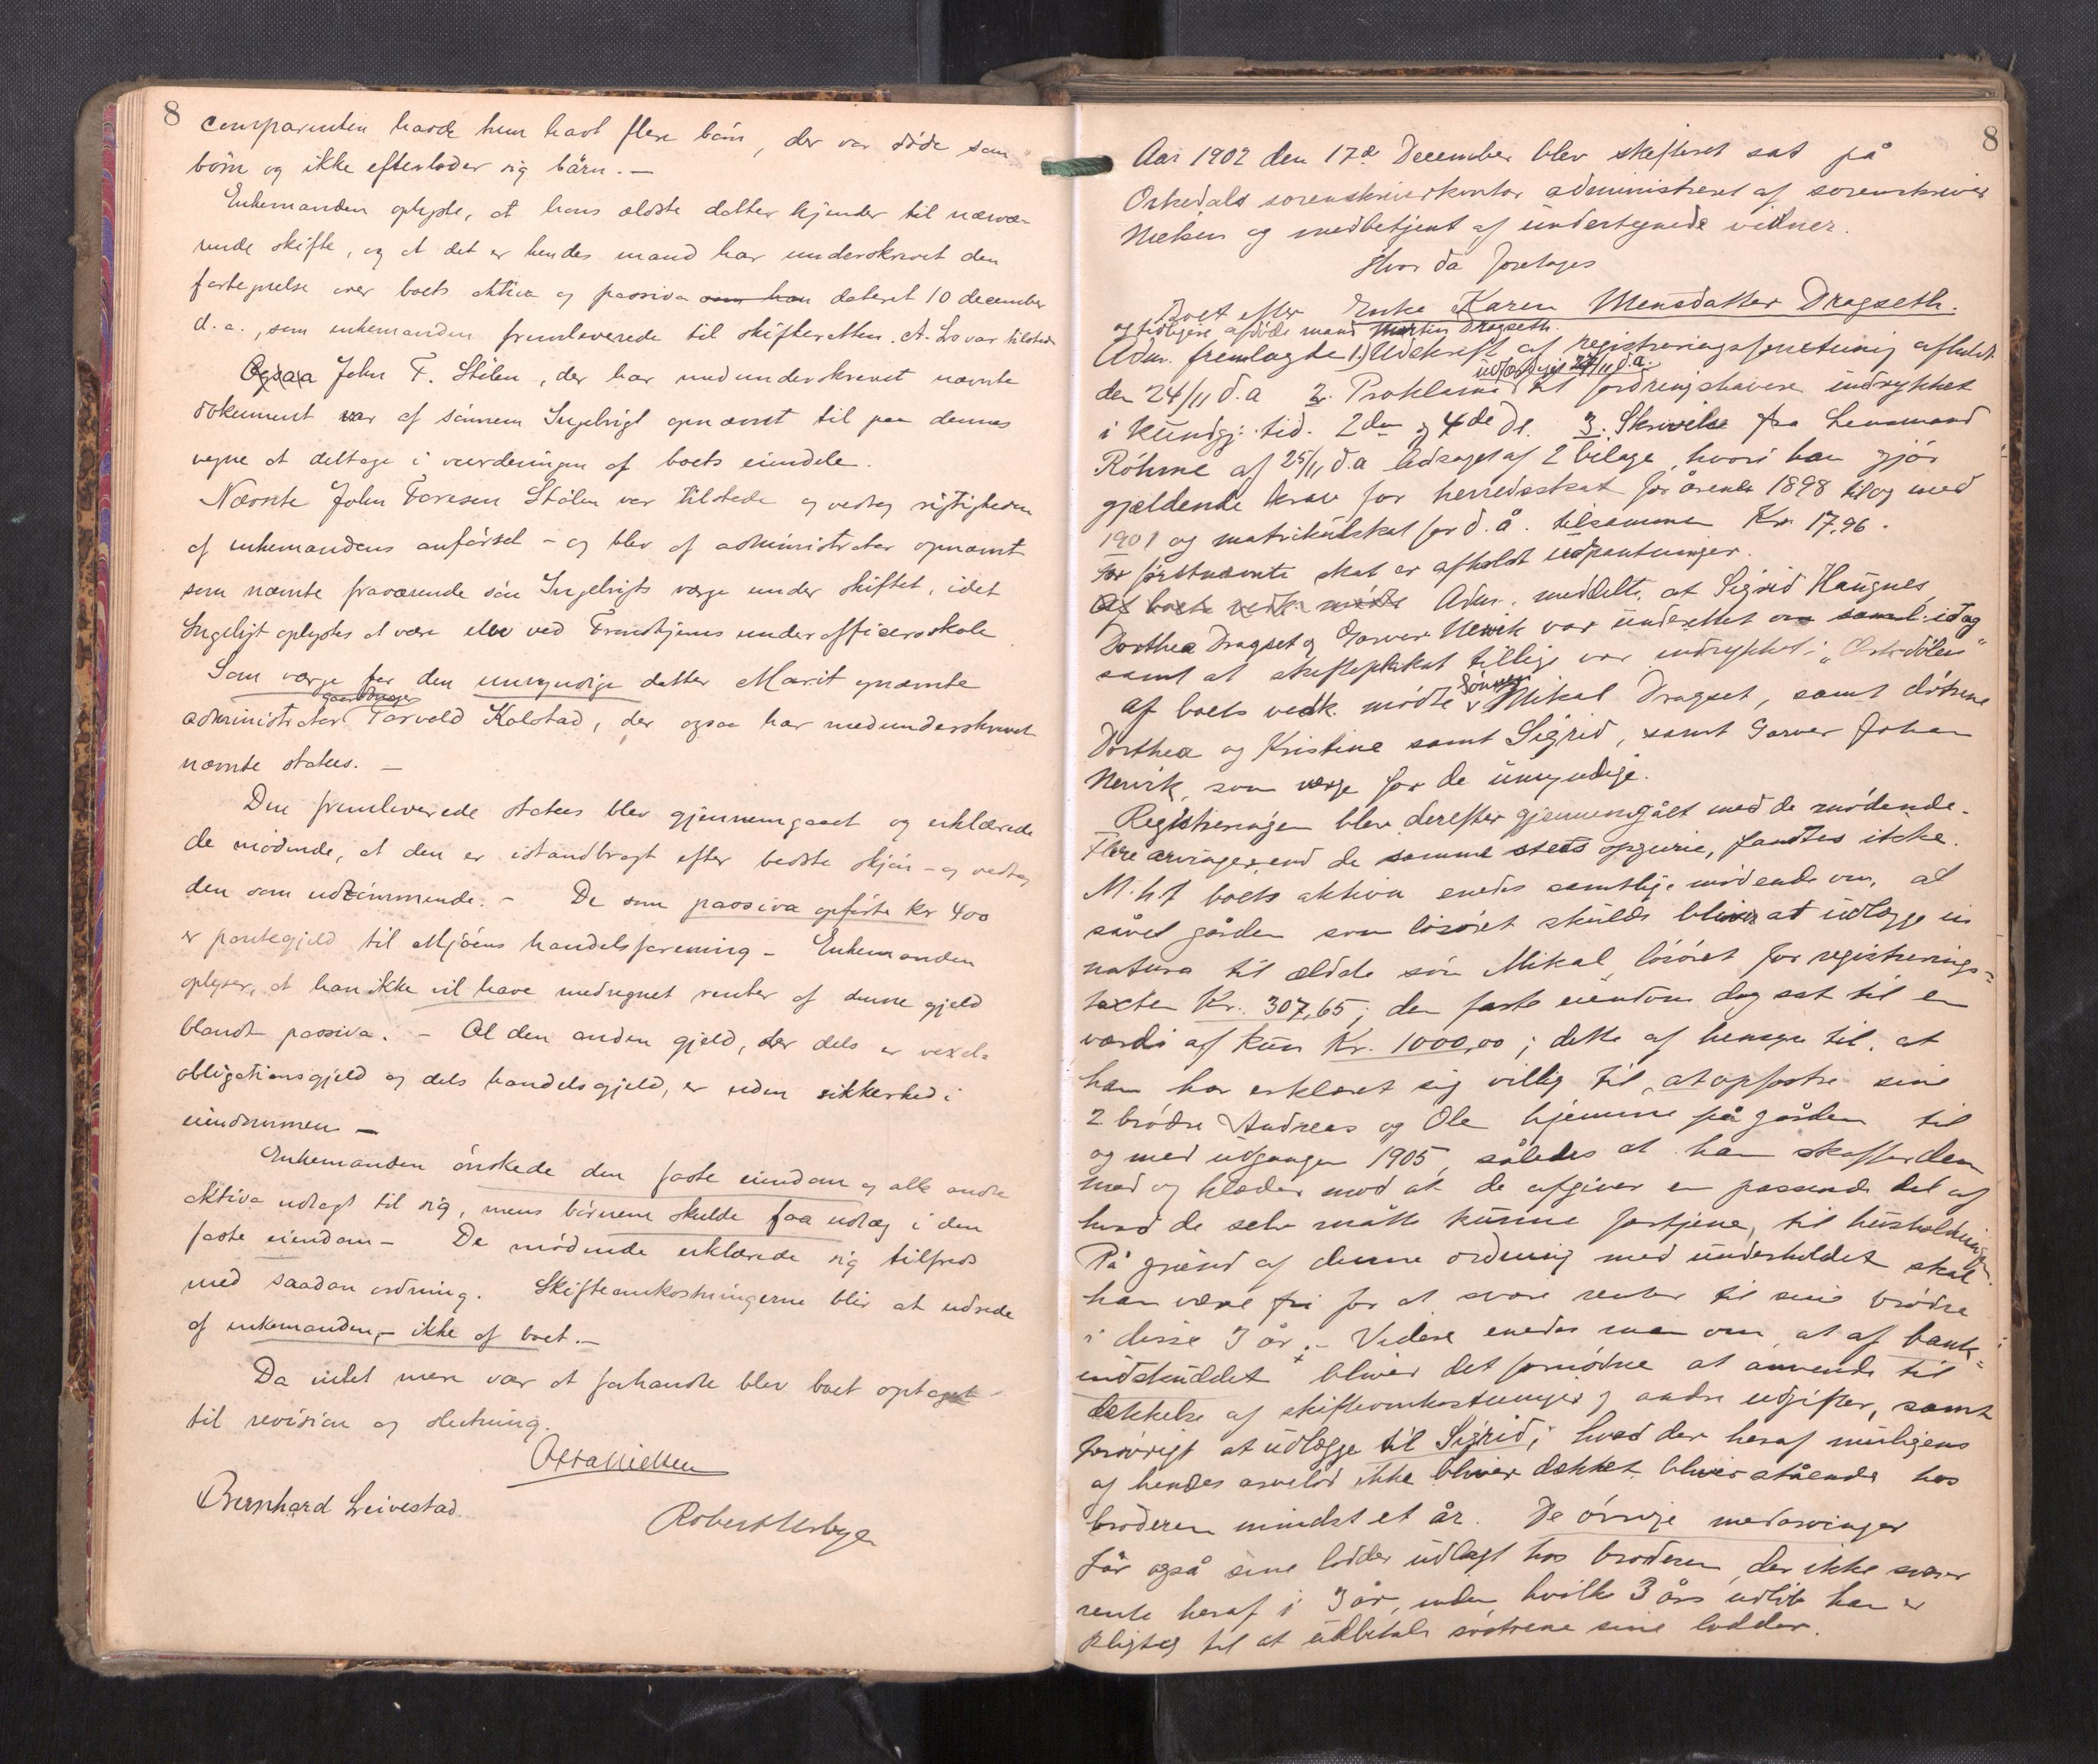 8
Comparenten havde hun havt flere børn, der var døde som
børn og ikke efterlader sig børn. —
Enkemanden oplyste, at hans ældste datter kjender til nærvæ-
rende skifte, og at det er hendes mand har underskrevet den
fortegnelse over boets aktiva og passiva som han dateret 10 december
d.a., som enkemanden fremleverede til skifteretten. A. Lo var tilstede
Ogsaa John F. Stölen, der har medunderskrevet nævnte
dokument var af sönnen Ingebrigt opnævnt til paa dennes
vegne at deltage i vurderingen af boets eiendele.
Nævnte John Foresen Stölen var tilstede og vedtog rigtigheden
af enkemandens anförsel – og blev af administrator opnævnt
som nævnte fraværende sön Ingebrigts værge under skiftet, idet
Ingebrigt oplystes at være elev ved Trondhjems underofficersskole
Som værge for den umyndige datter Marit opnævnte
gaardbruger
administrator Torvald Kalstad, der ogsaa har medunderskrevet
nævnte status. —
Den fremleverede status blev gjennemgaaet og erklærede
de mødende, at den er istandbragt efter bedste skjön – og vedtog
den som udtömmende. – De som passiva opförte kr 400
er pantegjeld til Mjöens handelsforening – Enkemanden
oplyser, at han ikke vil have medregnet renter af denne gjeld
blandt passiva. – Al den anden gjeld, der dels er vexel-
obligationsgjeld og dels handelsgjeld, er uden sikkerhed i
eiendommen —
Enkemanden önskede den faste eiendom og alle andre
aktiva udlagt til sig, mens börnene skulde faa udlæg i den
faste eiendom – De mödende erklærede sig tilfreds
med saadan ordning. Skifteomkostningerne blir at udrede
af enkemanden, – ikke af boet. —
Da intet mere var at forhandle blev boet optaget
til revision og slutning.
Otto Nielsen
Bernhard Leivestad.
8
Aar 1902 den 17de December blev skifteret sat på
Orkedals sorenskriverkontor administreret af sorenskriver
Nielsen og medbetjent af undertegnede vidner.
Hvor da foretoges
Boet efter Enke Karen Monsdatter Dragseth.
og tidligere afdöde mand Martin Dragseth.
Adm. fremlagde 1) Udskrift af registreringsforretning afholdt
udfærdiget 24/11 d.a.
den 24/11 d.a 2. Proklama til fordringshavere indrykket
i kundgj. tid. 2den og 4de ds. 3. Skrivelse fra Lensmand
Röhme af 25/11 d.a ledsaget af 2 bilage, hvori han gjör
gjældende krav for herredsskat for årene 1898 til og med
1901 og matrikulskat for d. å. tilsammen Kr. 17,96.
For förstnævnte skat er afholdt udpantninger.
Af boets vedk. mødte Adm. meddelte, at Sigrid Haugnes
Dorthea Dragset og Garver Nervik var underrettet om saml. idag
samt at skifteplakat tillige var indrykket i „Orkedölen“
Af boets vedk. mödte sönnen Mikal Dragset, samt dötrene
Dorthea og Kristine samt Sigrid, samt Garver Johan
Nervik, som værge for de umyndige.
Registreringen blev derefter gjennemgået med de mödende.
Flere arvinger, end de samme steds opgivne, fandtes ikke.
M.h.t boets aktiva enedes samtlige mödende om, at
såvel gården som lösöret skulde bliver at udlægge in
natura til ældste sön Mikal, lösöret for registrerings-
taxten Kr. 307,65; den faste eiendom dog sat til en
værdi af kun Kr. 1000,00; dette af hensyn til, at
han har erklæret sig villig til, at opfostre sine
2 brödre Andreas og Ole hjemme på gården til
og med udgangen 1905, således at han skaffer dem
mad og klæder mod at de afgiver en passende del af
hvad de selv måtte kunne fortjene, til husholdningen.
På grund af denne ordning med underholdet skal
han være fri for at svare renter til sine brödre
i disse 3 år. – Videre enedes man om, at af bank-
indskuddet bliver det fornödne at anvende til
dækkelse af skifteomkostninger og andre udgifter, samt
forövrigt at udlægge til Sigrid; hvad der heraf muligens
af hendes arvelod ikke bliver dækket, bliver stående hos
broderen mindst et år. De övrige medarvinger
får også sine lodder udlagt hos broderen, der ikke svarer
rente heraf i 3 år, inden hvilke 3 års udlöb han er
pligtig til at udbetale söstrene sine lodder.